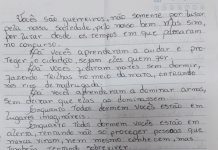 Vocês são guerreiros, não somente por lutar
pela nossa sociedade, pelo nosso bem. Mas sim,
por lutar desde os tempos em que passaram
no concurso.
Lá vocês aprenderam a ajudar e pro-
teger o cidadão, sejam eles quem for.
Lá vocês viraram noites sem dormir,
fazendo trilhas no meio da mata, entrando
nos rios de madrugada.
Lá vocês aprenderam a dominar armas,
sem deixar que elas os dominassem.
Enquanto todos dormem vocês estão em
lugares inimagináveis.
Enquanto todos dormem vocês estão em
alerta, tentando não só proteger pessoas que
nunca viram, nem mesmo conhecem, mas